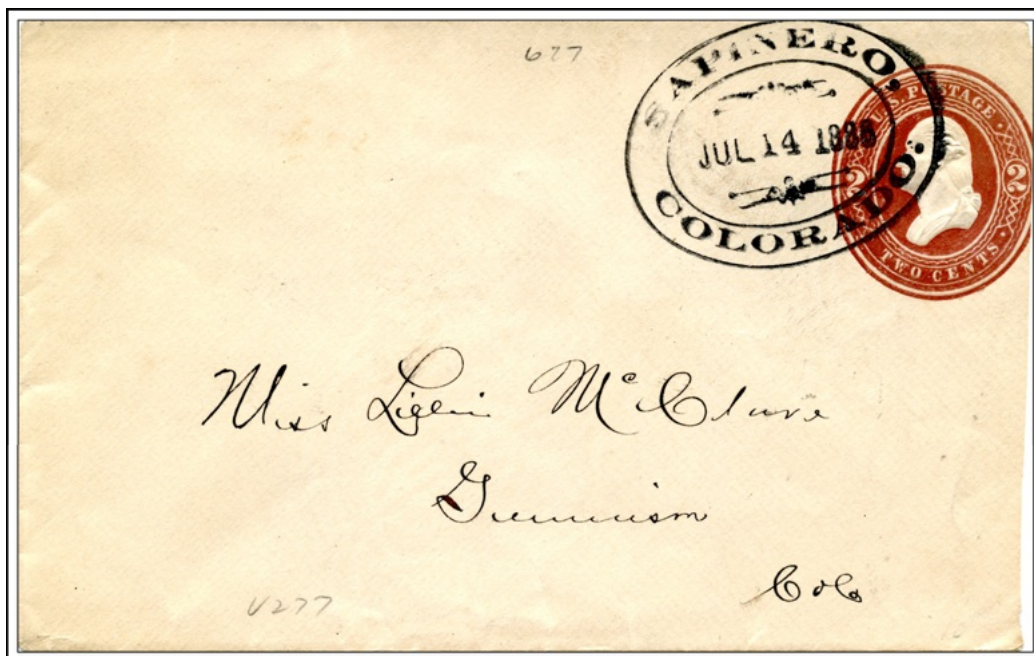 677
SAPINERO,
JUL 14 188
COLORADO.
U.S. POSTAGE
2 2
TWO CENTS
Miss McClure
Gunnison
Colo
U277